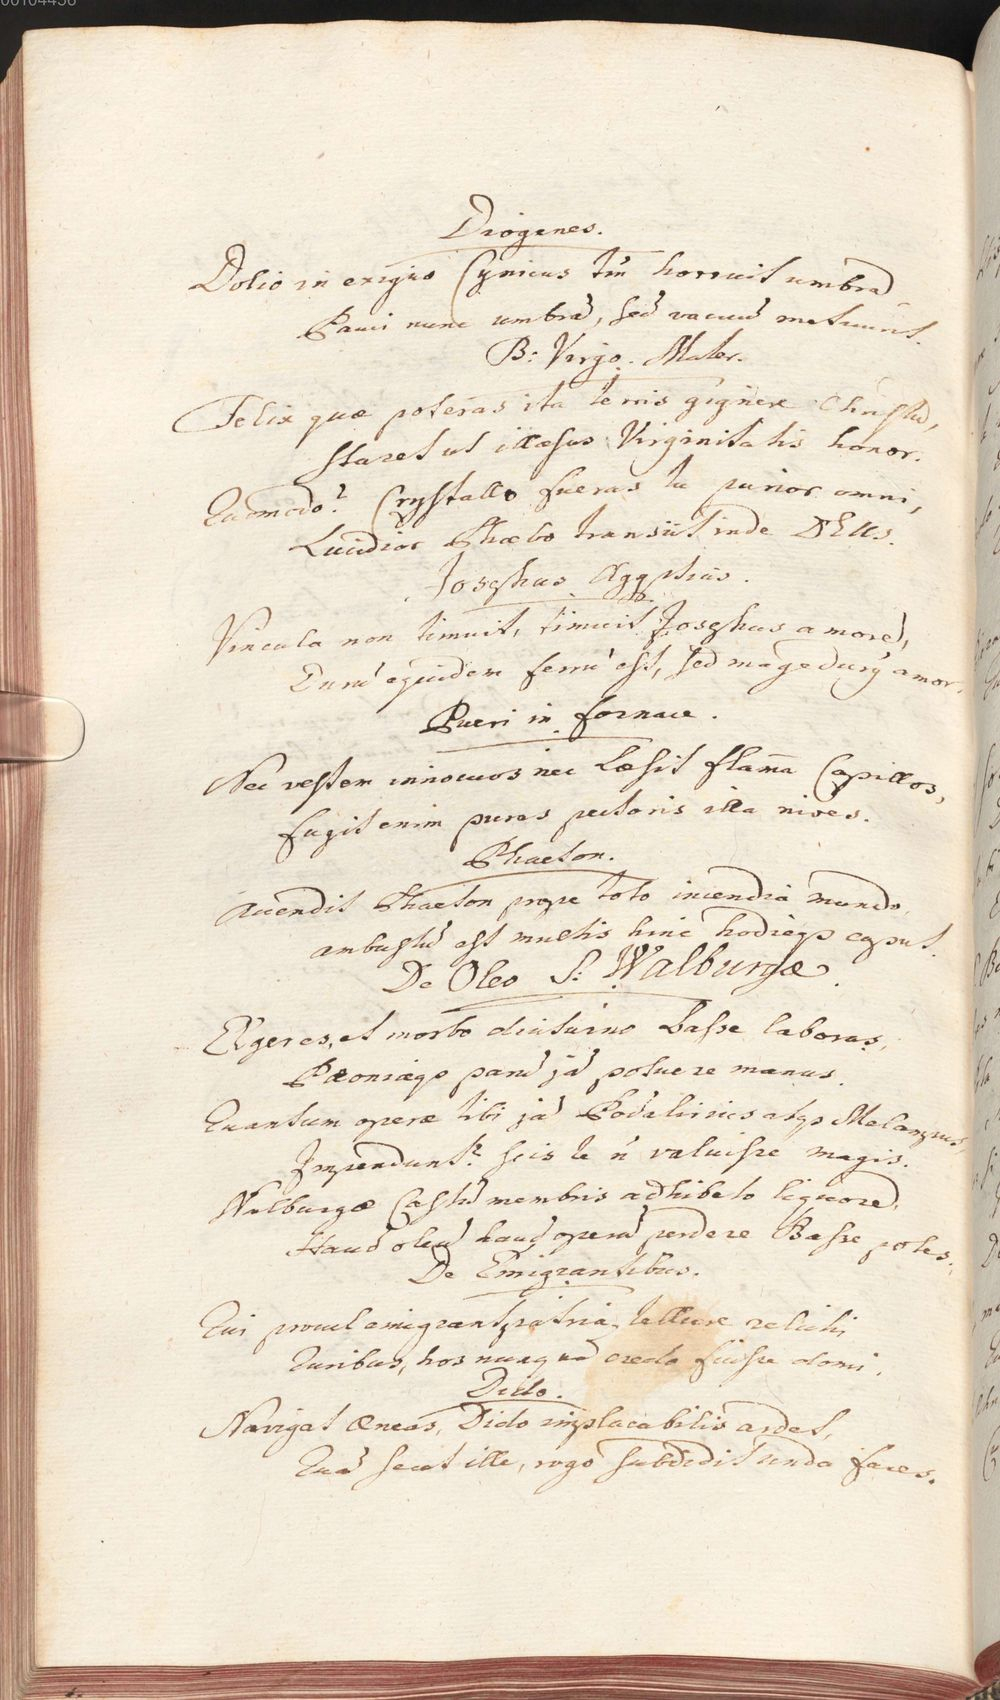 00104456
Diogenes.
Dolio in exiguo Cynicus tm̄ horruit umbrā
Pauci nunc umbrā, sed vacuū metuunt.
B: Virgo. Mater.
Felix quæ poteras ita terris gignere Christū,
staret ut illæsus Virginitatis honor.
Quomodo? Crystallo fueras tu purior omni,
Lucidior Phœbo transiit inde DEUs.
Josephus Ægyptius.
Vincula non timuit, timuit Josephus amorē,
Durū equidem ferrū est, sed mage durus amor.
Pueri in fornace.
Nec vestem innocuos nec læsit flam̄a Capillos,
fugit enim puras pectoris illa nives.
Phaeton.
Accendit Phaeton prope toto incendia mundo,
ambustū est multis hinc hodieqȝ caput.
De Oleo S: Walburgæ.
Ægeres, et morbo diuturno Basse laboras,
Pæoniæqȝ parū jā potuere manus.
Quantum operæ tibi jā Podalirius atqȝ Melampus,
Impendunt? scis te n̄ valuisse magis.
Walburgæ Castū membris adhibeto liquorē,
Haud oleū haud operā perdere Basse potes.
De Emigrantibus.
Qui procul emigrant patria tellure relicti
Curibus, hos nunquā credo fuisse domi.
Dido.
Navigat Æneas, Dido implacabilis ardet,
Quā secat ille, rogo subdidit unda faces.